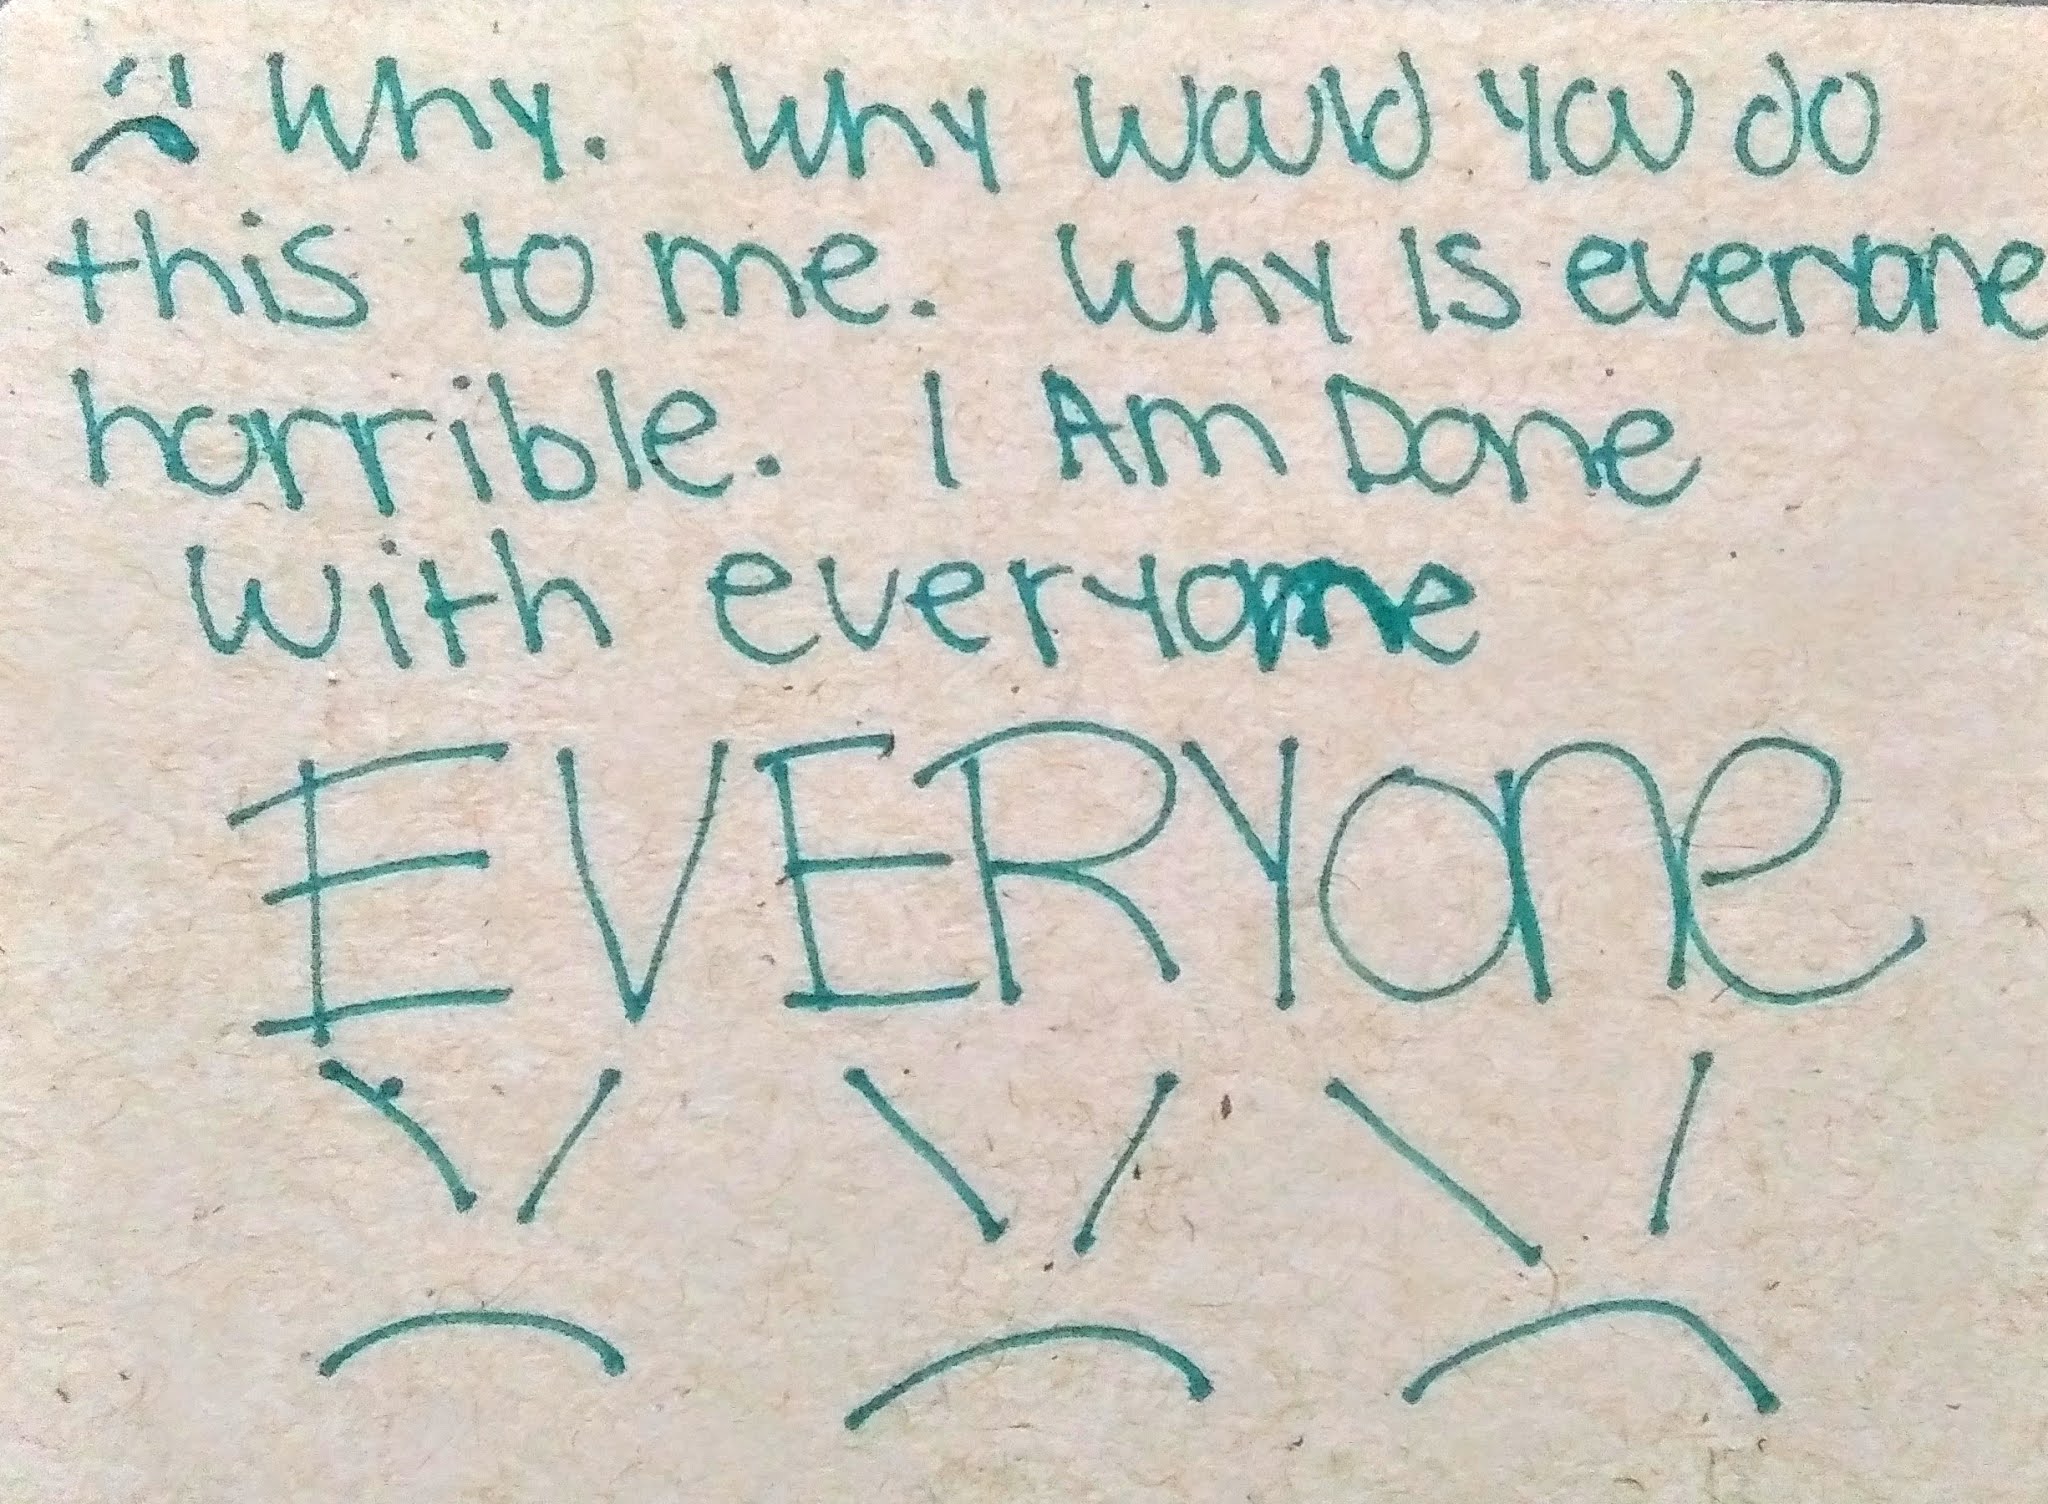 Why. Why Would You do
this to me. Why Is everyone
horrible. I Am Done
With everyone
EVERYone